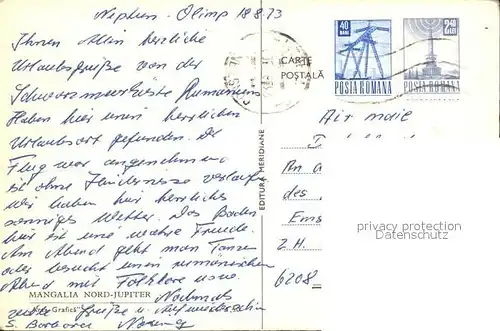 Neptun-Olimp 18.8.73
Ihnen Allen herzliche
Urlaubsgrüße von der
Schwarzmeerküste Rumäniens
Haben hier einen herrlichen
Urlaubsort gefunden. Der
Flug war angenehm und
ist ohne Hindernisse verlaufen
Wir haben hier herrliches
sonniges Wetter. Das Baden
hier ist eine wahre Freude.
Am Abend geht man Tanzen
oder besucht einen rumänischen
Abend mit Folklore usw.
Nochmals
Grüße u. Aufwiedersehen
MANGALIA NORD-JUPITER
S. Barbara
EDITURA MERIDIANE
CARTE
POŞTALĂ
40
BANI
POSTA ROMANA
2,40
LEI
POSTA ROMANA
Air maile
An
des
Ems
Z.H.
6208
privacy protection
Datenschutz